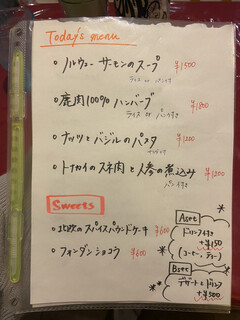 Today's menu
・ノルウェーサーモンのスープ ¥1500
ライス or パン付き
・鹿肉100% ハンバーグ ¥1800
ライス or パン付き
・ナッツとバジルのパスタ ¥1200
・トナカイのスネ肉と人参の煮込み ¥1200
パン付き
Sweets
・北欧のスパイスパウンドケーキ ¥600
・フォンダンショコラ ¥600
Aset
ドリンク付き
+¥150
(コーヒー, ティー)
Bset
デザート+ドリンク
+¥500